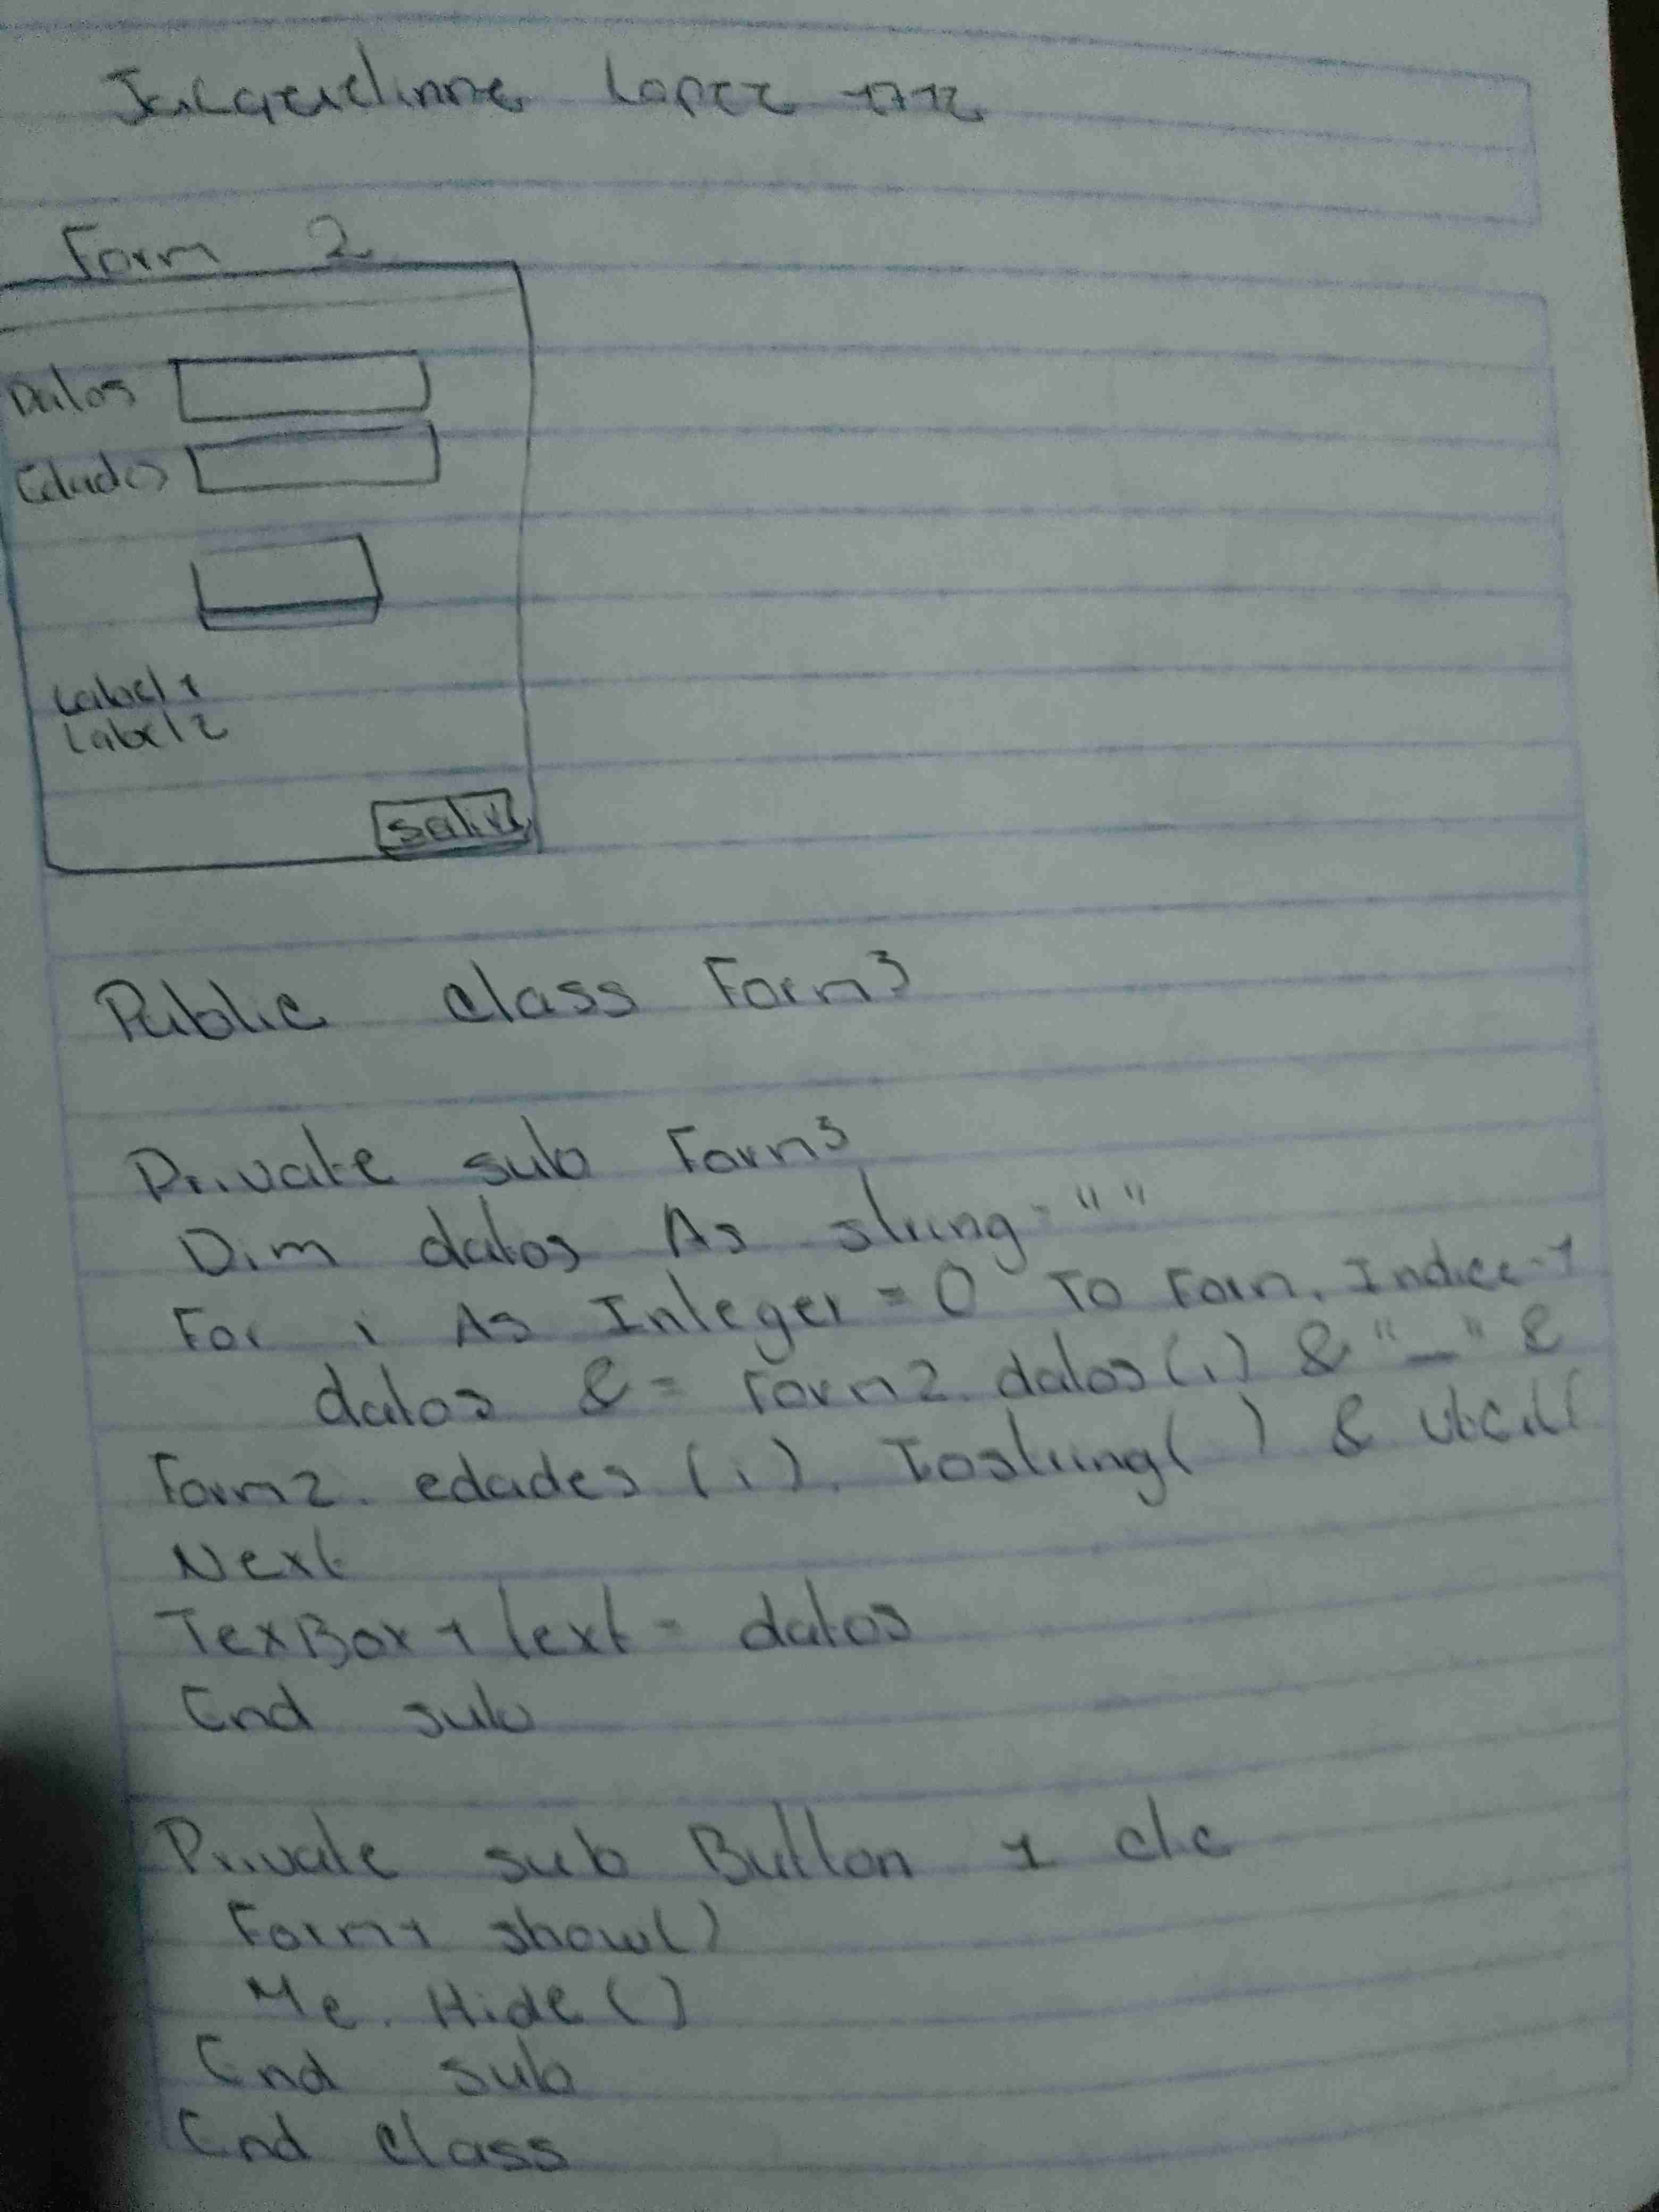 Jacquelinne Lopez 1712
Form 2
Datos
Edades
Label 1
Label 2
Salir
Public class Form3
Private sub Form3
Dim datos As string = " "
For i As Integer = 0 To Form. Indice-1
datos &= Form2. datos(i) & "_" &
Form2. edades (i). Tostring( ) & vbCrlf
Next
TexBox1 text = datos
End sub
Private sub Button 1 clc
Form1 show()
Me. Hide ()
End sub
End class